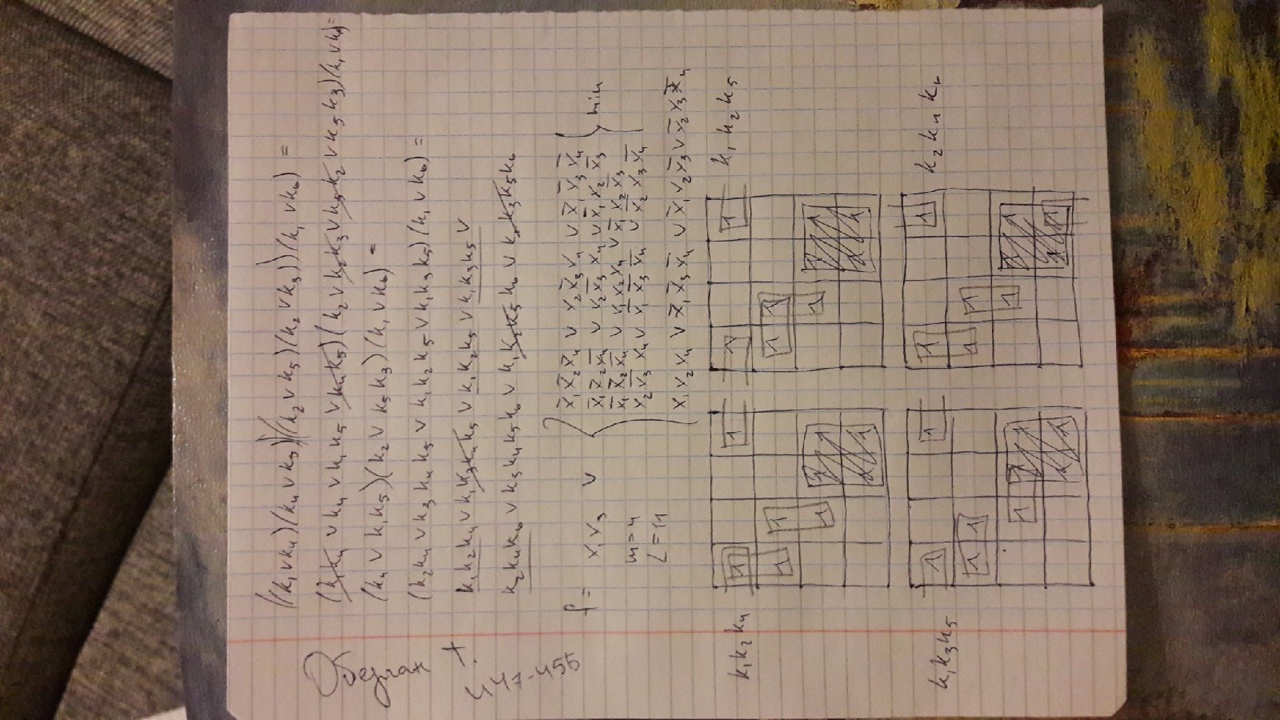 ((k₁∨k₄)(k₄∨k₅)(k₂∨k₅)(k₂∨k₃))(k₁∨k₆) =
(k₁k₄ ∨ k₄ ∨ k₁k₅ ∨ k₄k₅)(k₂ ∨ k₂k₃ ∨ k₅k₂ ∨ k₅k₃)(k₁∨k₆) =
(k₄ ∨ k₁k₅)(k₂ ∨ k₅k₃)(k₁∨k₆) =
(k₂k₄ ∨ k₃k₄k₅ ∨ k₁k₂k₅ ∨ k₁k₃k₅)(k₁∨k₆) =
k₁k₂k₄ ∨ k₁k₃k₄k₅ ∨ k₁k₂k₅ ∨ k₁k₃k₅ ∨
k₂k₄k₆ ∨ k₃k₄k₅k₆ ∨ k₁k₂k₅k₆ ∨ k₁k₃k₅k₆
f = x₁x₃ ∨
m=4
L=11
x̄₁x̄₂x̄₄ ∨ x₂x̄₃x₄ ∨ x̄₁x̄₃x̄₄
x̄₁x̄₂x̄₄ ∨ x₂x̄₃x₄ ∨ x̄₁x₂x̄₃
x̄₁x̄₂x̄₄ ∨ x₁x₂x₄ ∨ x̄₁x₂x̄₃
x₂x̄₃x₄ ∨ x̄₁x̄₃x̄₄ ∨ x̄₂x₃x̄₄
min
x₁x₂x₄ ∨ x̄₁x̄₃x̄₄ ∨ x̄₁x₂x̄₃ ∨ x̄₂x₃x̄₄
k₁k₂k₄
1 1
1 1
1
k₁k₂k₅
1 1
1 1
1
k₁k₃k₅
1 1
1 1
1
k₂k₄k₆
1 1
1 1
1